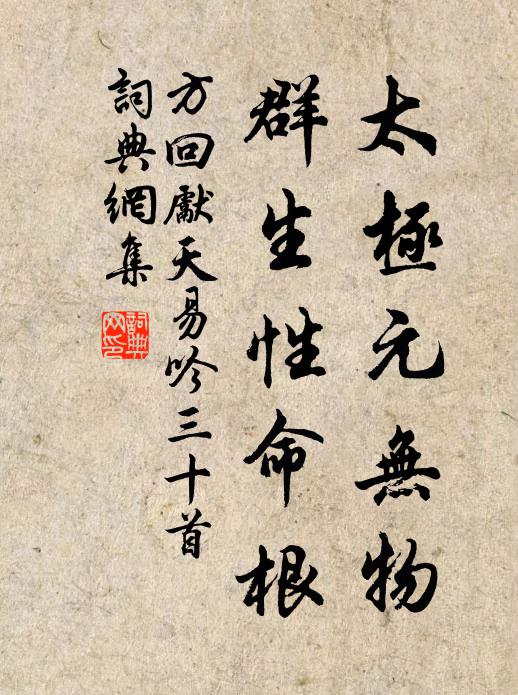 太極元無物
群生性命根
方回獻天易吟三十首
詞典網集
詞典
网印